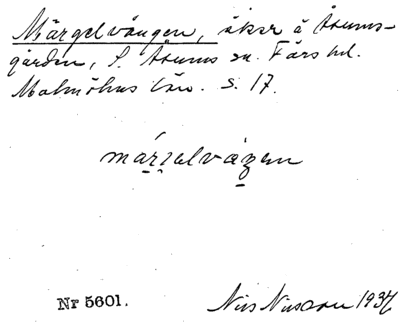 Märgelvången, åker å Åsums-
gården, S. Åsums sn. Färs hd.
Malmöhus län. s. 17.
märgelvången
Nr 5601.
Nils Nilsson 1937